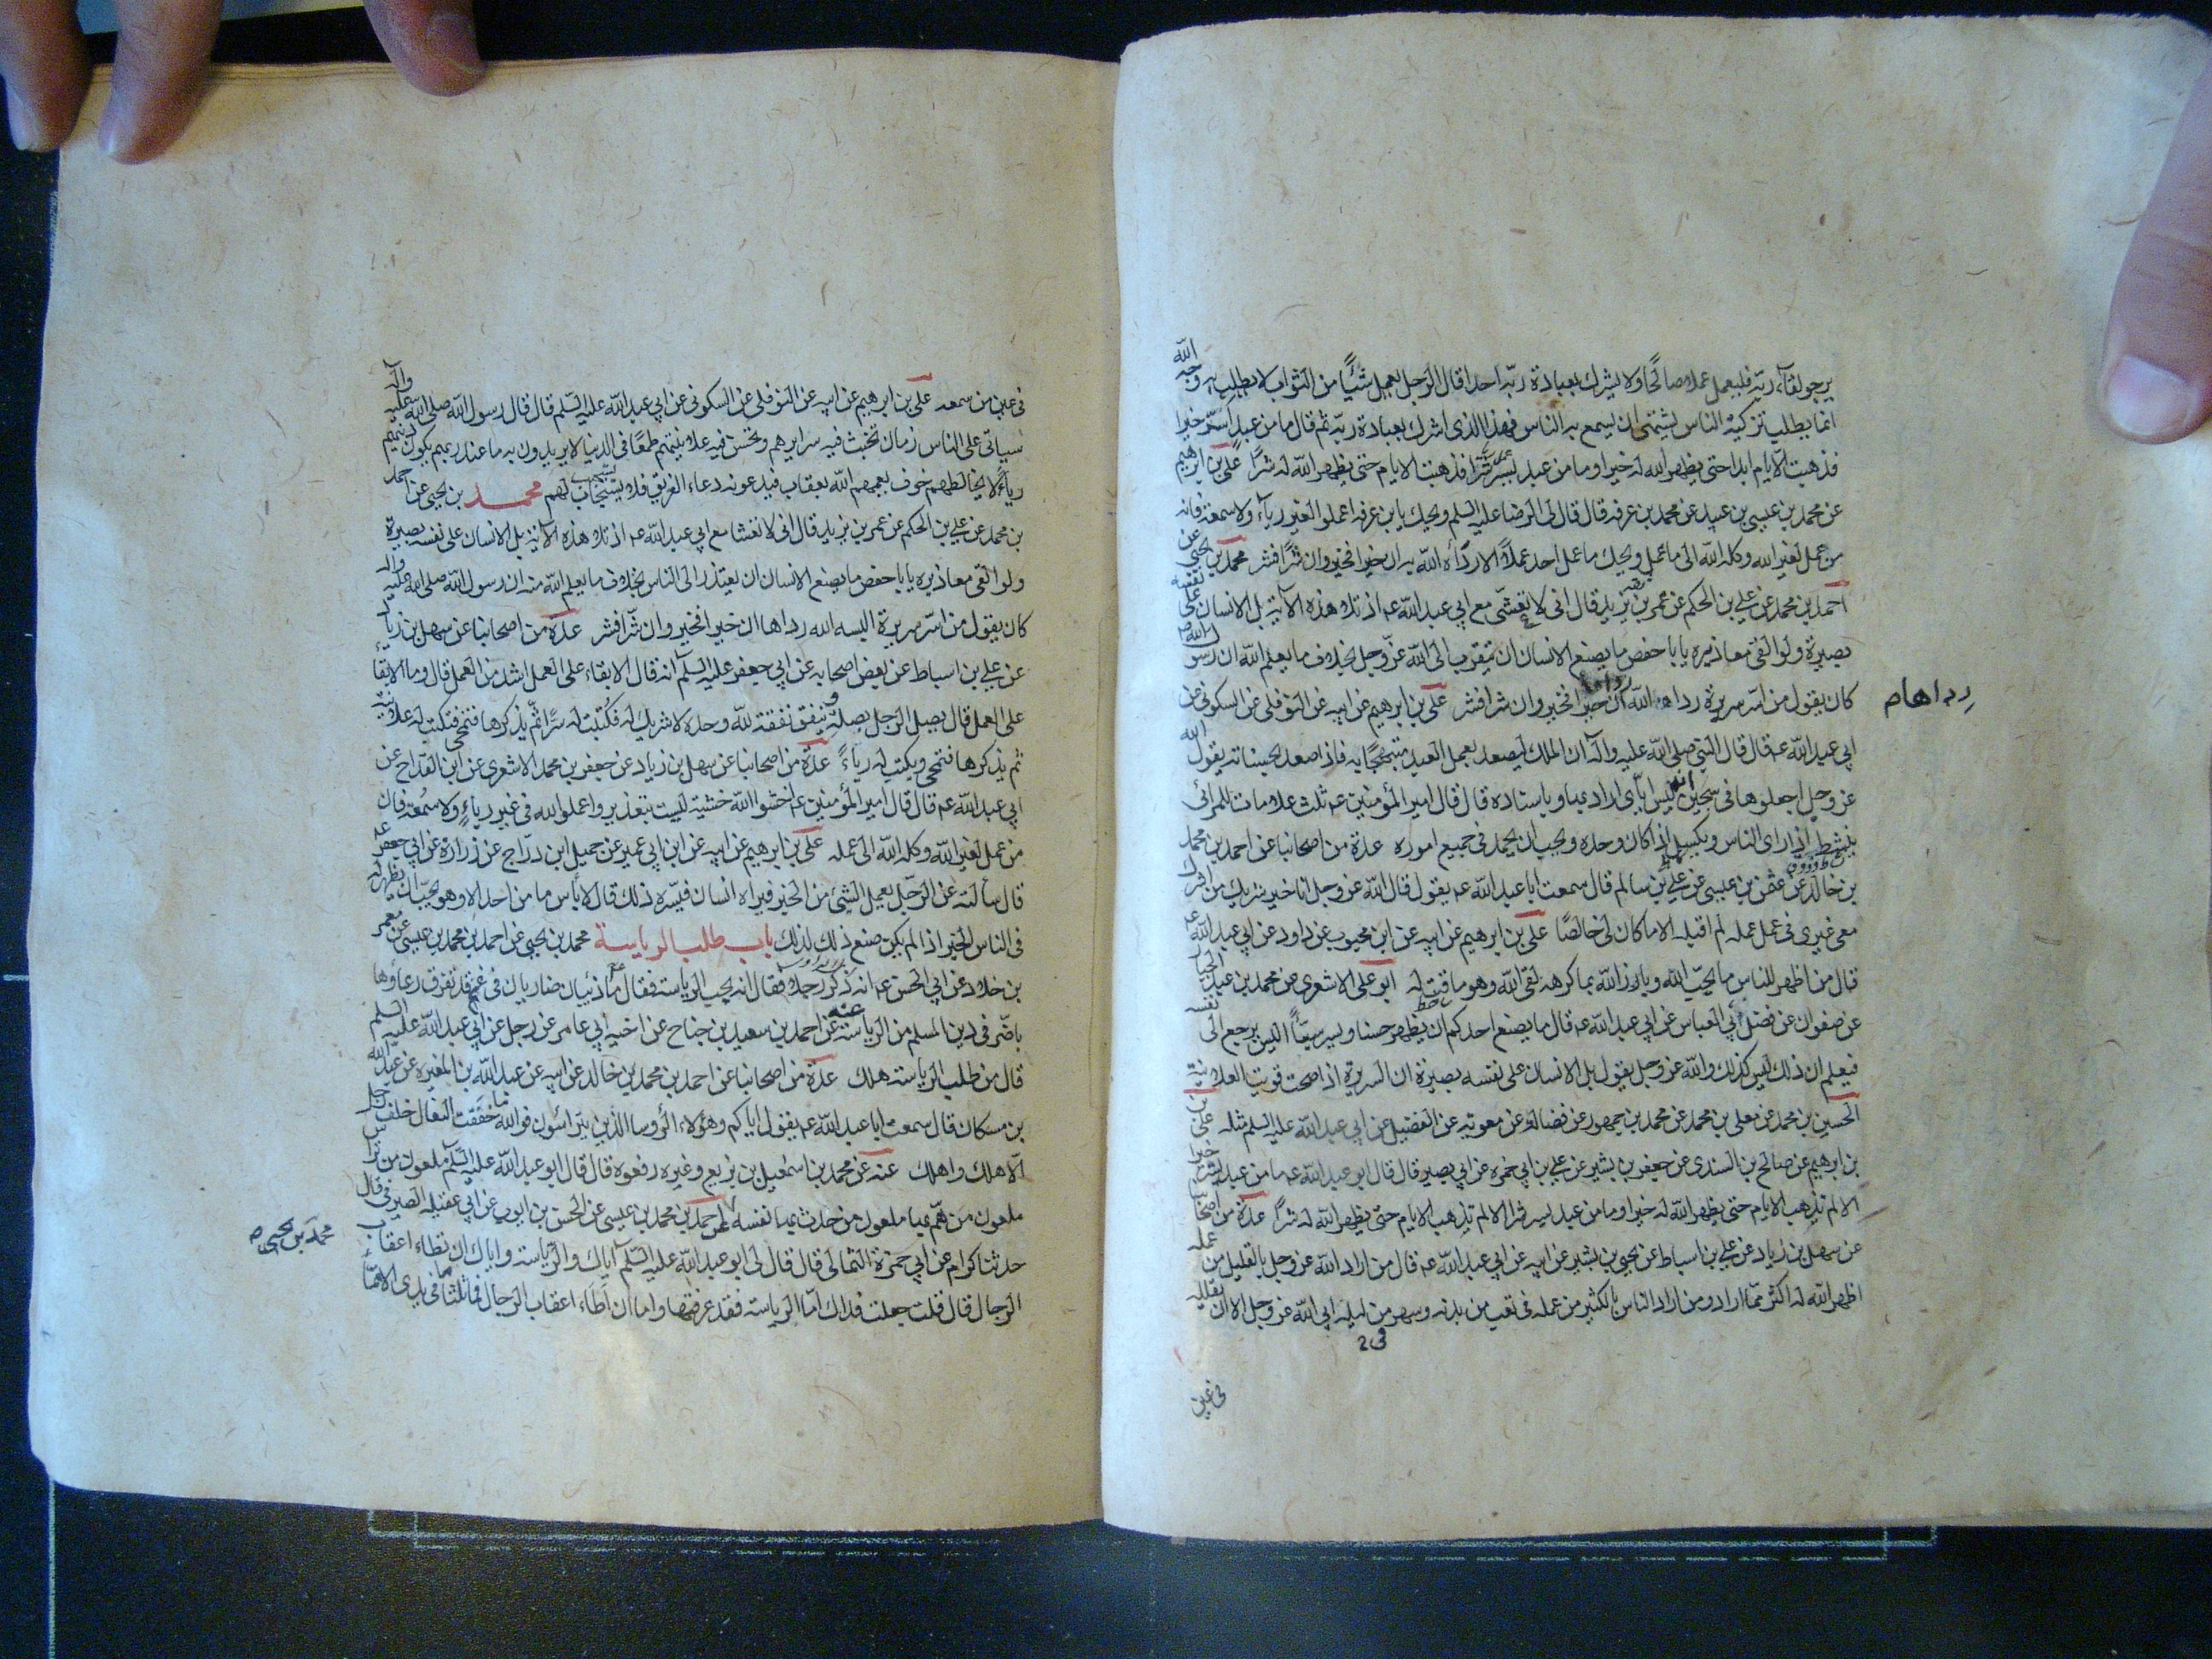 يرجو لقاء ربه فليعمل عملا صالحا ولا يشرك بعبادة ربه احدا قال الرجل يعمل شيئا من الثواب لا يطلب به وجه الله
انما يطلب تزكية الناس يشتهى ان يسمع به الناس فهذا الذى اشرك بعبادة ربه ثم قال ما من عبد اسر خيرا
فذهبت الايام ابدا حتى يظهر الله له خيرا وما من عبد يسر شرا فذهبت الايام حتى يظهر الله له شرا على بن ابرهيم
عن محمد بن عيسى بن عبيد عن محمد بن عرفه قال قال لى الرضا عليه السلم ويحك يا بن عرفه اعملوا لغير رياء ولا سمعة فانه
من عمل لغير الله وكله الله الى ما عمل ويحك ما عمل احد عملا الا رداه الله به ان خيرا فخير وان شرا فشر محمد بن يحيى عن
احمد بن محمد عن على بن الحكم عن عمر بن يزيد قال انى لا تعشى مع ابى عبد الله عه اذ تلا هذه الآية بل الانسان على نفسه
بصيرة ولو القى معاذيره يا با حفص ما يصنع الانسان ان يتقرب الى الله عز وجل بخلاف ما يعلم الله ان رسول الله ص
كان يقول من اسر سريرة رداه الله رداها ان خيرا فخير وان شرا فشر على بن ابرهيم عن ابيه عن النوفلى عن السكونى عن
رداها ص
ابى عبد الله عه قال قال النبى صلى الله عليه وآله ان الملك ليصعد بعمل العبد مبتهجا به فاذا صعد بحسناته يقول الله
عز وجل اجعلوها فى سجين انه ليس اياى اراد بها وباسناده قال قال امير المؤمنين عه ثلث علامات للمرائى
ينشط اذا راى الناس ويكسل اذا كان وحده ويحب ان يحمد فى جميع اموره عدة من اصحابنا عن احمد بن محمد
بن خالد عن عثمن بن عيسى عن على بن سالم قال سمعت ابا عبد الله عه يقول قال الله عز وجل انا خير شريك من اشرك
معى غيرى فى عمل عمله لم اقبله الا ما كان لى خالصا على بن ابرهيم عن ابيه عن ابن محبوب عن داود عن ابى عبد الله عه
قال من اظهر للناس ما يحب الله وبارز الله بما كرهه لقى الله وهو ماقت له ابو على الاشعرى عن محمد بن عبد الجبار
عن صفوان عن فضل ابى العباس عن ابى عبد الله عه قال ما يصنع احدكم ان يظهر حسنا ويسر سيئا اليس يرجع الى نفسه
فيعلم ان ذلك ليس كذلك والله عز وجل يقول بل الانسان على نفسه بصيرة ان السريرة اذا صحت قويت العلانية
الحسين بن محمد عن معلى بن محمد عن محمد بن جمهور عن فضاله عن معوية عن الفضيل عن ابى عبد الله عليه السلم مثله على
بن ابرهيم عن صالح بن السندى عن جعفر بن بشير عن على بن ابى حمزه عن ابى بصير قال قال ابو عبد الله عه ما من عبد يسر خيرا
الا لم تذهب الايام حتى يظهر الله له خيرا وما من عبد يسر شرا الا لم تذهب الايام حتى يظهر الله له شرا عدة من اصحابنا
عن سهل بن زياد عن على بن اسباط عن يحيى بن بشير عن ابيه عن ابى عبد الله عه قال من اراد الله عز وجل بالقليل من عمله
اظهر الله له اكثر مما اراد ومن اراد الناس بالكثير من عمله فى تعب من بدنه وسهر من ليله ابى الله عز وجل الا ان يقلله
فى عين
فى عين من سمعه على بن ابرهيم عن ابيه عن النوفلى عن السكونى عن ابى عبد الله عليه السلم قال قال رسول الله صلى الله عليه وآله
سياتى على الناس زمان تخبث فيه سرايرهم وتحسن فيه علانيتهم طمعا فى الدنيا لا يريدون به ما عند ربهم يكون دينهم
رياء لا يخالطهم خوف يعمهم الله بعقاب فيدعونه دعاء الغريق فلا يستجاب لهم محمد بن يحيى عن احمد
بن محمد عن على بن الحكم عن عمر بن يزيد قال انى لا تعشا مع ابى عبد الله عه اذ تلا هذه الآية بل الانسان على نفسه بصيرة
ولو القى معاذيره يا با حفص ما يصنع الانسان ان يعتذر الى الناس بخلاف ما يعلم الله منه ان رسول الله صلى الله عليه وآله
كان يقول من اسر سريرة البسه الله رداها ان خيرا فخير وان شرا فشر عدة من اصحابنا عن سهل بن زياد
عن على بن اسباط عن بعض اصحابه عن ابى جعفر عليه السلم انه قال الابقاء على العمل اشد من العمل قال وما الابقاء
على العمل قال يصل الرجل بصلة وينفق نفقة لله وحده لا شريك له فكتبت له سرا ثم يذكرها فتمحى فتكتب له علانية
ثم يذكرها فتمحى ويكتب له رياء عدة من اصحابنا عن سهل بن زياد عن جعفر بن محمد الاشعرى عن ابن القداح عن
ابى عبد الله عه قال قال امير المؤمنين عه اخشوا الله خشية ليست بتعذير واعملوا لله فى غير رياء ولا سمعة فان
من عمل لغير الله وكله الله الى عمله على بن ابرهيم عن ابيه عن ابن ابى عمير عن جميل ابن دراج عن زرارة عن ابى جعفر عه
قال سألته عن الرجل يعمل الشئ من الخير فيراه انسان فيسره ذلك قال لا بأس ما من احد الا وهو يحب ان يظهر له
فى الناس الخير اذا لم يكن صنع ذلك لذلك باب طلب الرياسة محمد بن يحيى عن احمد بن محمد بن عيسى عن معمر
بن خلاد عن ابى الحسن عه انه ذكر رجلا فقال انه يحب الرياسة فقال ما ذئبان ضاريان فى غنم قد تفرق رعاؤها
باضر فى دين المسلم من الرياسة عنه عن احمد بن سعيد بن جناح عن اخيه ابى عامر عن رجل عن ابى عبد الله عليه السلم
قال من طلب الرياسة هلك عدة من اصحابنا عن احمد بن محمد بن خالد عن ابيه عن عبد الله بن المغيره عن عبد الله
بن مسكان قال سمعت ابا عبد الله عه يقول اياكم وهؤلاء الروسا الذين يتراسون فوالله ما خفقت النعال خلف رجل
الا هلك واهلك عنه عن محمد بن اسمعيل بن بزيع وغيره رفعوه قال قال ابو عبد الله عليه السلم ملعون من تراس
ملعون من هم بها ملعون من حدث بها نفسه عن احمد بن محمد بن عيسى عن الحسن بن ايوب عن ابى عقيله الصيرفى قال
محمد بن يحيى ص
حدثنا كرام عن ابى حمزة الثمالى قال قال لى ابو عبد الله عليه السلم اياك والرياسة واياك ان تطاء اعقاب
الرجال قال قلت جعلت فداك اما الرياسة فقد عرفتها واما ان اطاء اعقاب الرجال فما ثلثا ما فى يدى الا مما